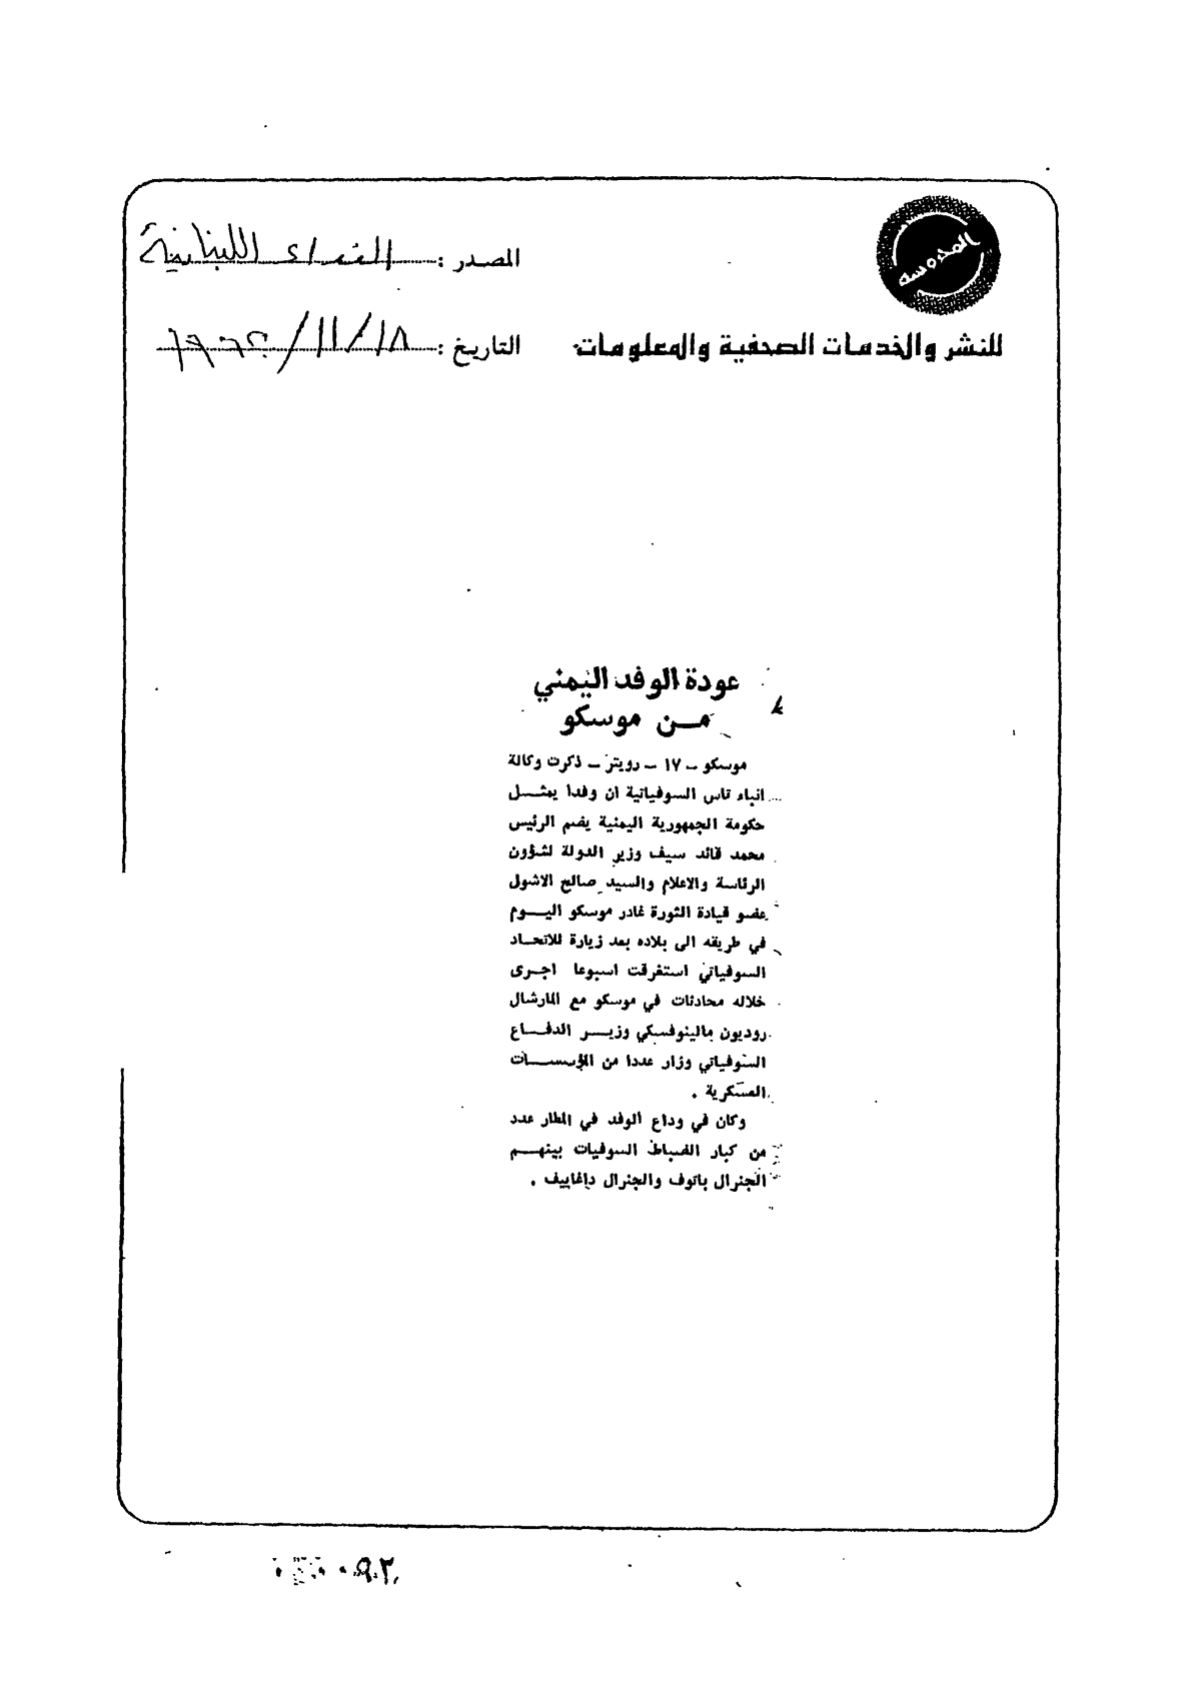 المحروسه
للنشر والخدمات الصحفية والمعلومات
المصدر : النداء اللبنانية
التاريخ : ١٨/١١/١٩٦٢
عودة الوفد اليمني
من موسكو
موسكو - ١٧ - رويتر - ذكرت وكالة
انباء تاس السوفياتية ان وفدا يمثل
حكومة الجمهورية اليمنية يضم الرئيس
محمد قائد سيف وزير الدولة لشؤون
الرئاسة والاعلام والسيد صالح الاشول
عضو قيادة الثورة غادر موسكو اليوم
في طريقه الى بلاده بعد زيارة للاتحاد
السوفياتي استغرقت اسبوعا اجرى
خلاله محادثات في موسكو مع المارشال
روديون مالينوفسكي وزير الدفاع
السوفياتي وزار عددا من المؤسسات
العسكرية .
وكان في وداع الوفد في المطار عدد
من كبار الضباط السوفيات بينهم
الجنرال باتوف والجنرال داغاييف .